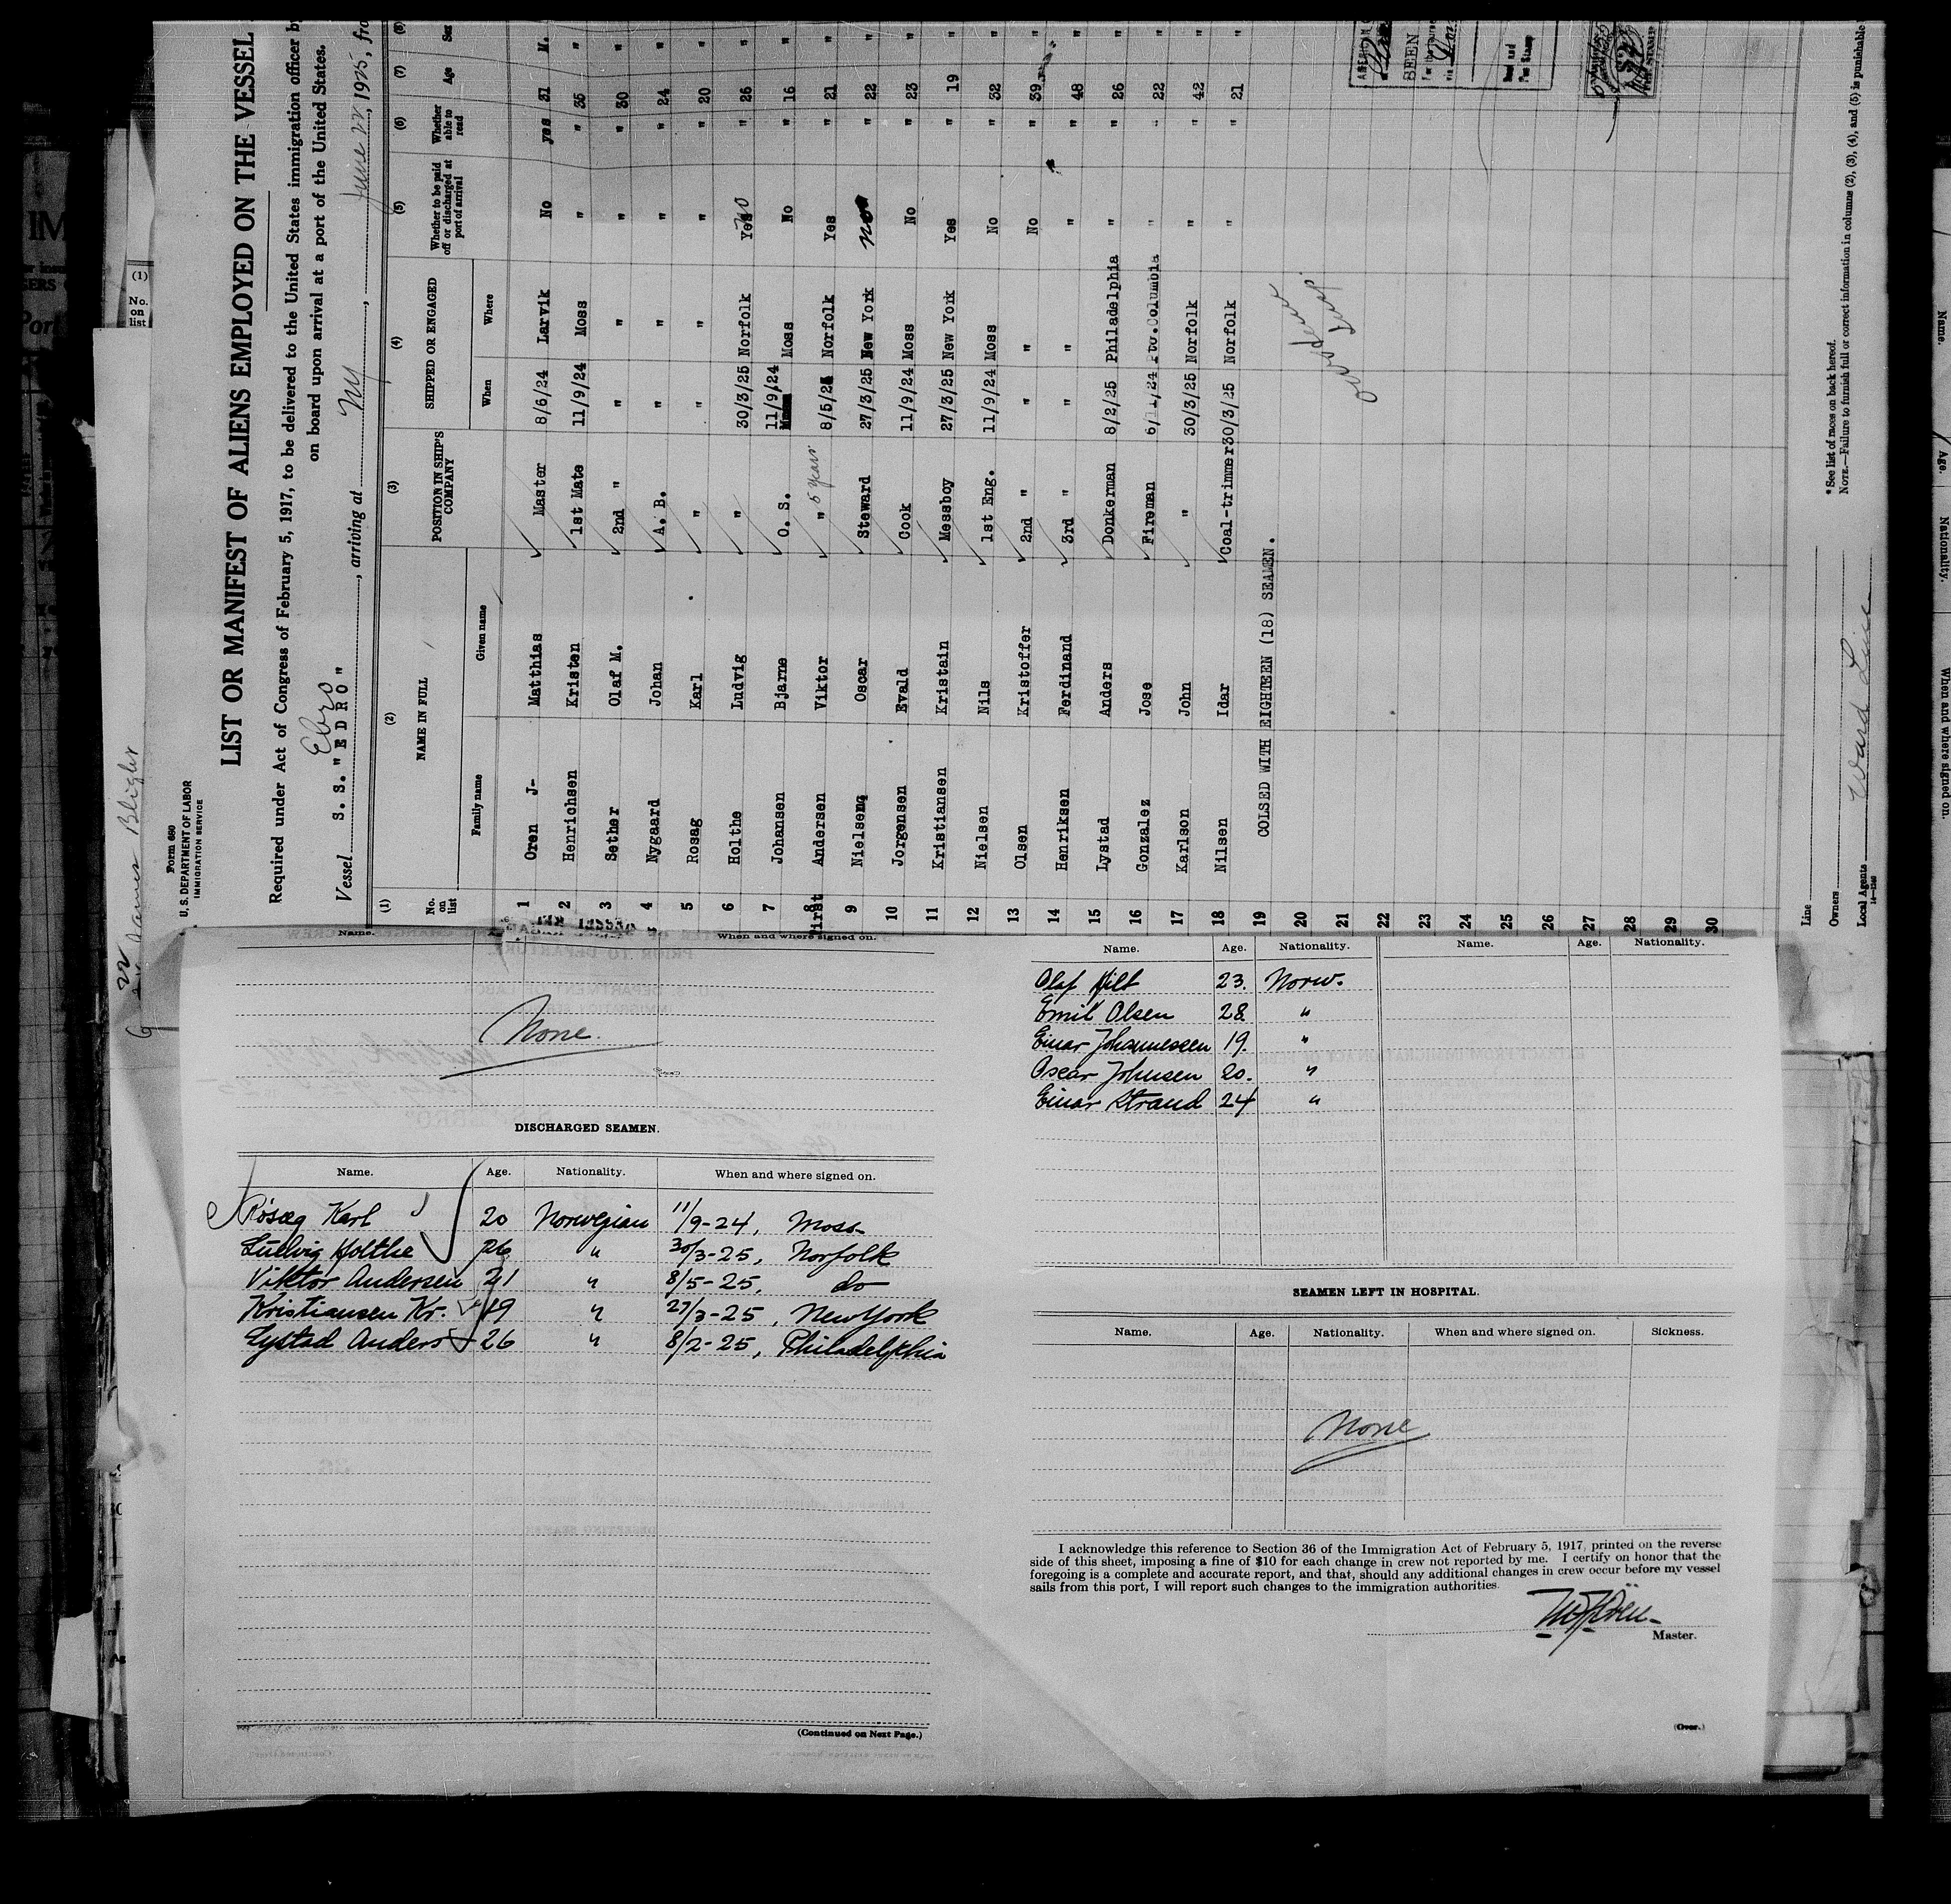 Form 680
U. S. DEPARTMENT OF LABOR
IMMIGRATION SERVICE
LIST OR MANIFEST OF ALIENS EMPLOYED ON THE VESSEL
Required under Act of Congress of February 5, 1917, to be delivered to the United States immigration officer by
on board upon arrival at a port of the United States.
Ebro
Vessel S. S. "EDRO", arriving at NY, June 22, 1925, fro
(1) (2) (3) (4) (5) (6) (7) (8)
No. on list NAME IN FULL POSITION IN SHIP'S COMPANY SHIPPED OR ENGAGED Whether to be paid off or discharged at port of arrival Whether able to read Age Sex
Family name Given name When Where
1 Oren J- Matthias Master 8/6/24 Larvik No yes 31 M.
2 Henrichsen Kristen 1st Mate 11/9/24 Moss " " 35 "
3 Sether Olaf M. 2nd " " " " " 30 "
4 Nygaard Johan A. B. " " " " 24 "
5 Rosag Karl " " " " " 20 "
6 Holthe Ludvig " 30/3/25 Norfolk Yes no " 26 "
7 Johansen Bjarne O. S. 11/9/24 Moss No " 16 "
8 Andersen Viktor " 5 years 8/5/25 Norfolk Yes " 21 "
9 Nielsen Oscar Steward 27/3/25 New York no " 22 "
10 Jorgensen Evald Cook 11/9/24 Moss No " 23 "
11 Kristiansen Kristain Messboy 27/3/25 New York Yes " 19 "
12 Nielsen Nils 1st Eng. 11/9/24 Moss No " 32 "
13 Olsen Kristoffer 2nd " " " No " 39 "
14 Henriksen Ferdinand 3rd " " " " " 48 "
15 Lystad Anders Donkerman 8/2/25 Philadelphia " " 26 "
16 Gonzalez Jose Fireman 6/11/24 Pto.Columbia " " 22 "
17 Karlson John " 30/3/25 Norfolk " " 42 "
18 Nilsen Idar Coal-trimmer 30/3/25 Norfolk " " 21 "
19 COLSED WITH EIGHTEEN (18) SEAMEN.
20
21
22
23
24
25
26
27
28
29
30
Line
Owners
Local Agents Ward Line
* See list of races on back hereof.
NOTE.—Failure to furnish full or correct information in columns (2), (3), (4), and (5) is punishable
SEEN
Name. When and where signed on.
None
DISCHARGED SEAMEN.
Name. Age. Nationality. When and where signed on.
Røsæg Karl 20 Norwegian 11/9-24, Moss
Ludvig Holthe 26 " 30/3-25, Norfolk
Viktor Andersen 21 " 8/5-25, do
Kristiansen Kr. 19 " 27/3-25, New York
Lystad Anders 26 " 8/2-25, Philadelphia
(Continued on Next Page.)
Name. Age. Nationality. Name. Age. Nationality.
Olaf Hilt 23. Norw.
Emil Olsen 28 "
Einar Johannessen 19. "
Oscar Johnsen 20. "
Einar Strand 24 "
SEAMEN LEFT IN HOSPITAL.
Name. Age. Nationality. When and where signed on. Sickness.
None
I acknowledge this reference to Section 36 of the Immigration Act of February 5, 1917, printed on the reverse
side of this sheet, imposing a fine of $10 for each change in crew not reported by me. I certify on honor that the
foregoing is a complete and accurate report, and that, should any additional changes in crew occur before my vessel
sails from this port, I will report such changes to the immigration authorities.
Master.
(Over.)